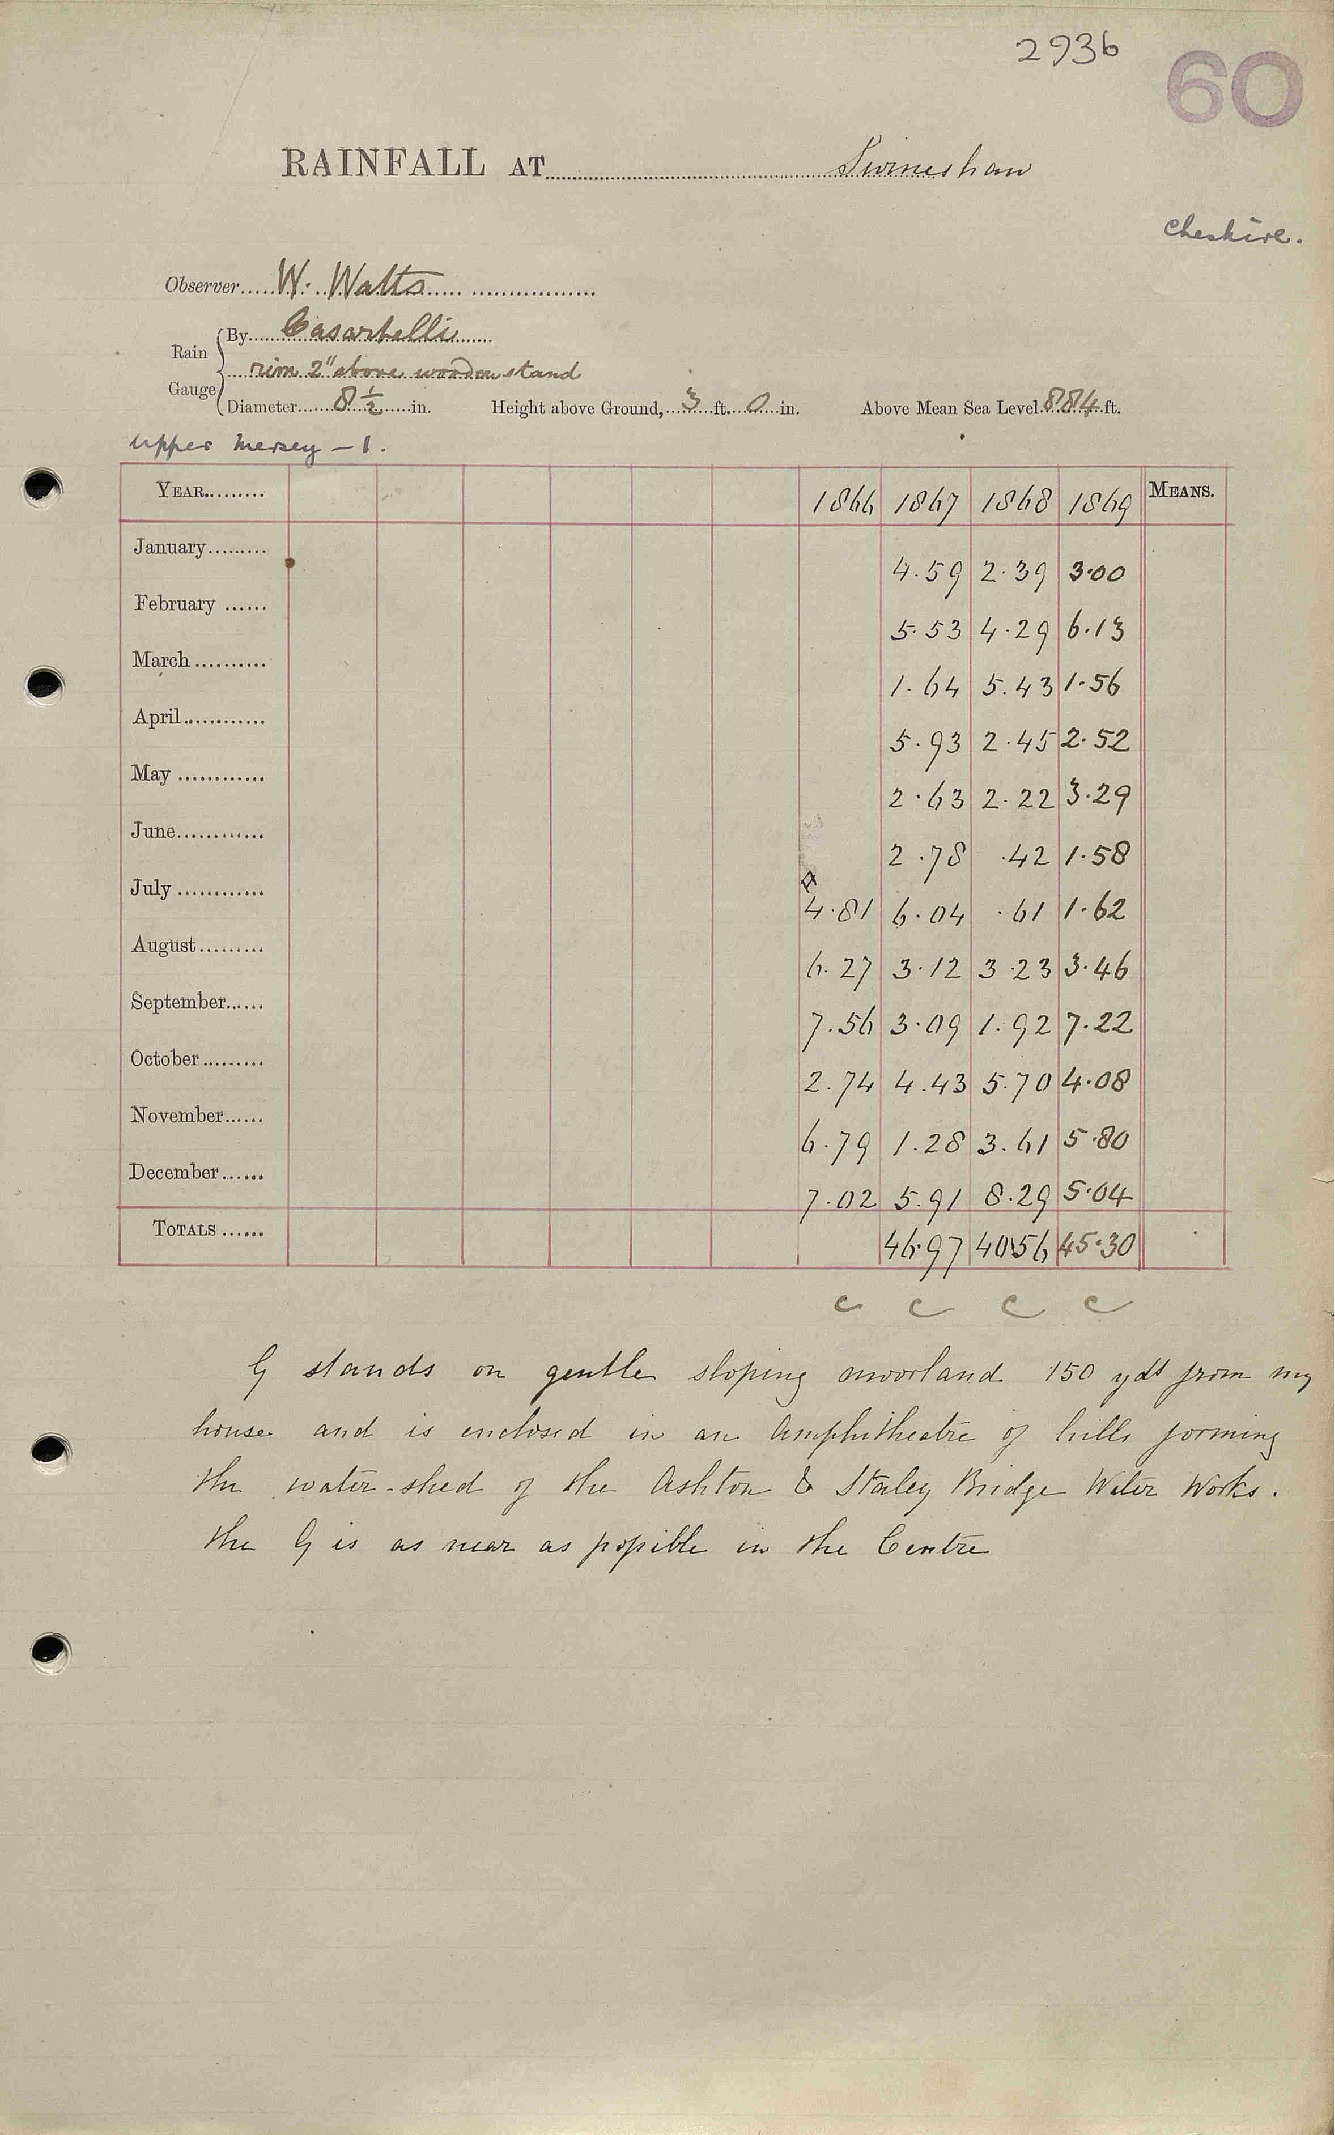 2936
60
RAINFALL AT Swineshaw
Cheshire.
Observer W. Watts
Rain Gauge By Casartelli
rim 2" above wooden stand
Diameter 8½ in. Height above Ground, 3 ft. 0 in. Above Mean Sea Level 884 ft.
Upper Mersey – 1.
YEAR 1866 1867 1868 1869 MEANS.
January 4.59 2.39 3.00
February 5.53 4.29 6.13
March 1.64 5.43 1.56
April 5.93 2.45 2.52
May 2.63 2.22 3.29
June 2.78 .42 1.58
July 4.81 6.04 .61 1.62
August 6.27 3.12 3.23 3.46
September 7.56 3.09 1.92 7.22
October 2.74 4.43 5.70 4.08
November 6.79 1.28 3.61 5.80
December 7.02 5.91 8.29 5.04
TOTALS 46.97 40.56 45.30
c c c c
G stands on gentle sloping moorland 150 yds from my
house and is enclosed in an Amphitheatre of hills forming
the water-shed of the Ashton & Staley Bridge Water Works.
the G is as near as possible in the Centre